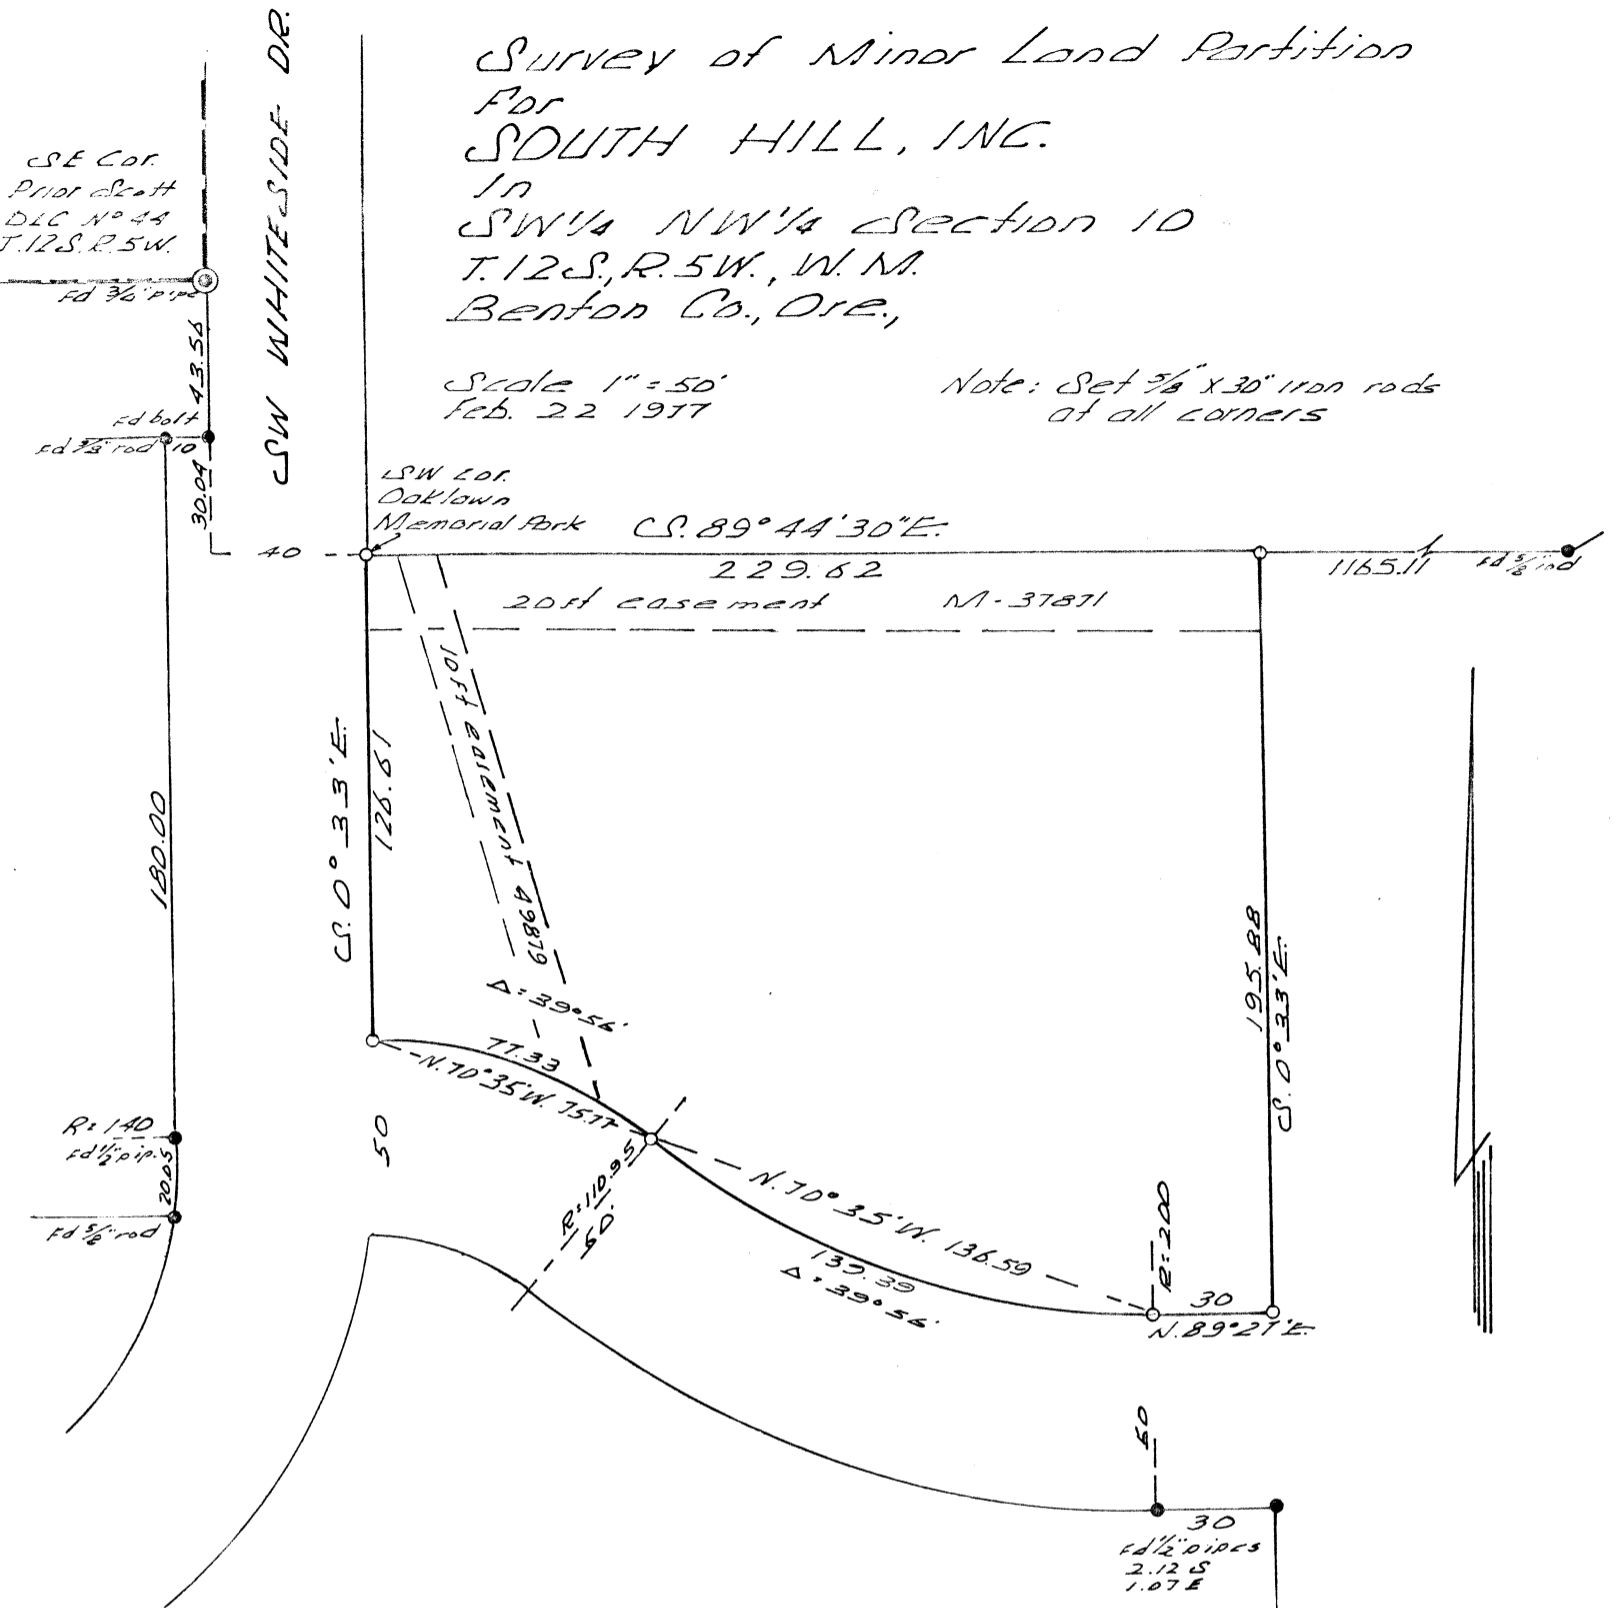 Survey of Minor Land Partition
For
SOUTH HILL, INC.
In
SW 1/4 NW 1/4 Section 10
T.12S., R.5W., W.M.
Benton Co., Ore.,
Scale 1" = 50'
Feb. 22 1977
Note: Set 5/8" x 30" iron rods
at all corners
SW WHITESIDE DR.
SE Cor.
Prior Scott
DLC Nº 44
T.12S.R.5W.
Fd 3/4" pipe
43.56
Fd bolt
Fd 5/8" rod
10
30.04
40
SW Cor.
Oaklawn
Memorial Park
S. 89° 44' 30" E.
229.62
1165.11
Fd 5/8" rod
20ft easement M-37871
10ft easement 49879
180.00
S. 0° 33' E.
126.61
195.88
S. 0° 33' E.
Δ = 39° 56'
77.33
N. 70° 35' W. 75.77
R = 140
Fd 1/2" pip.
20.05
Fd 5/8" rod
50
R = 110.95
50'
N. 70° 35' W. 136.59
139.39
Δ = 39° 56'
R = 200
30
N. 89° 27' E.
50
30
Fd 1/2" pipes
2.12 S
1.07 E